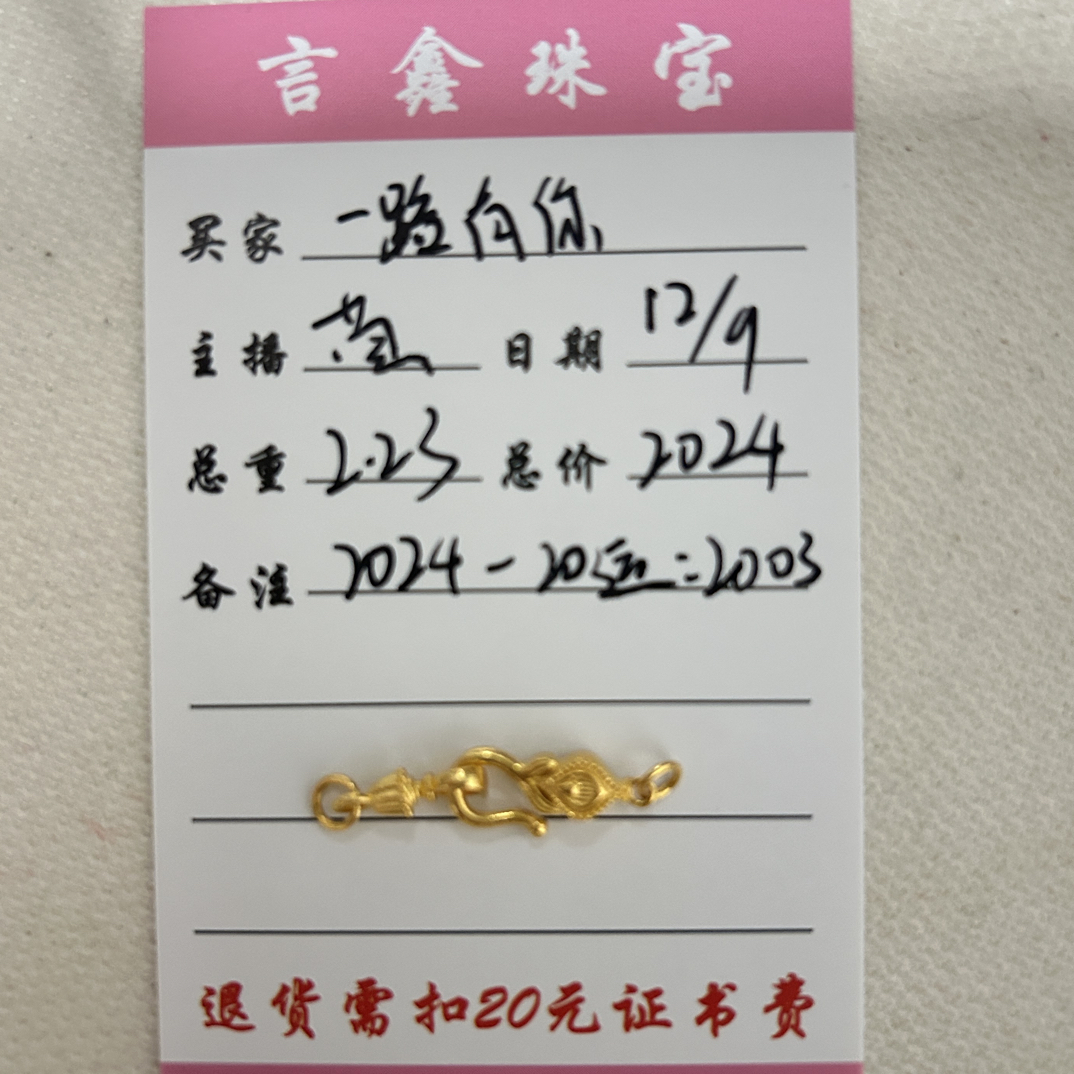 言鑫珠宝
买家 一路向你
主播 黄 日期 12/9
总重 2.23 总价 2024
备注 2024-20 =2003
退货需扣20元证书费